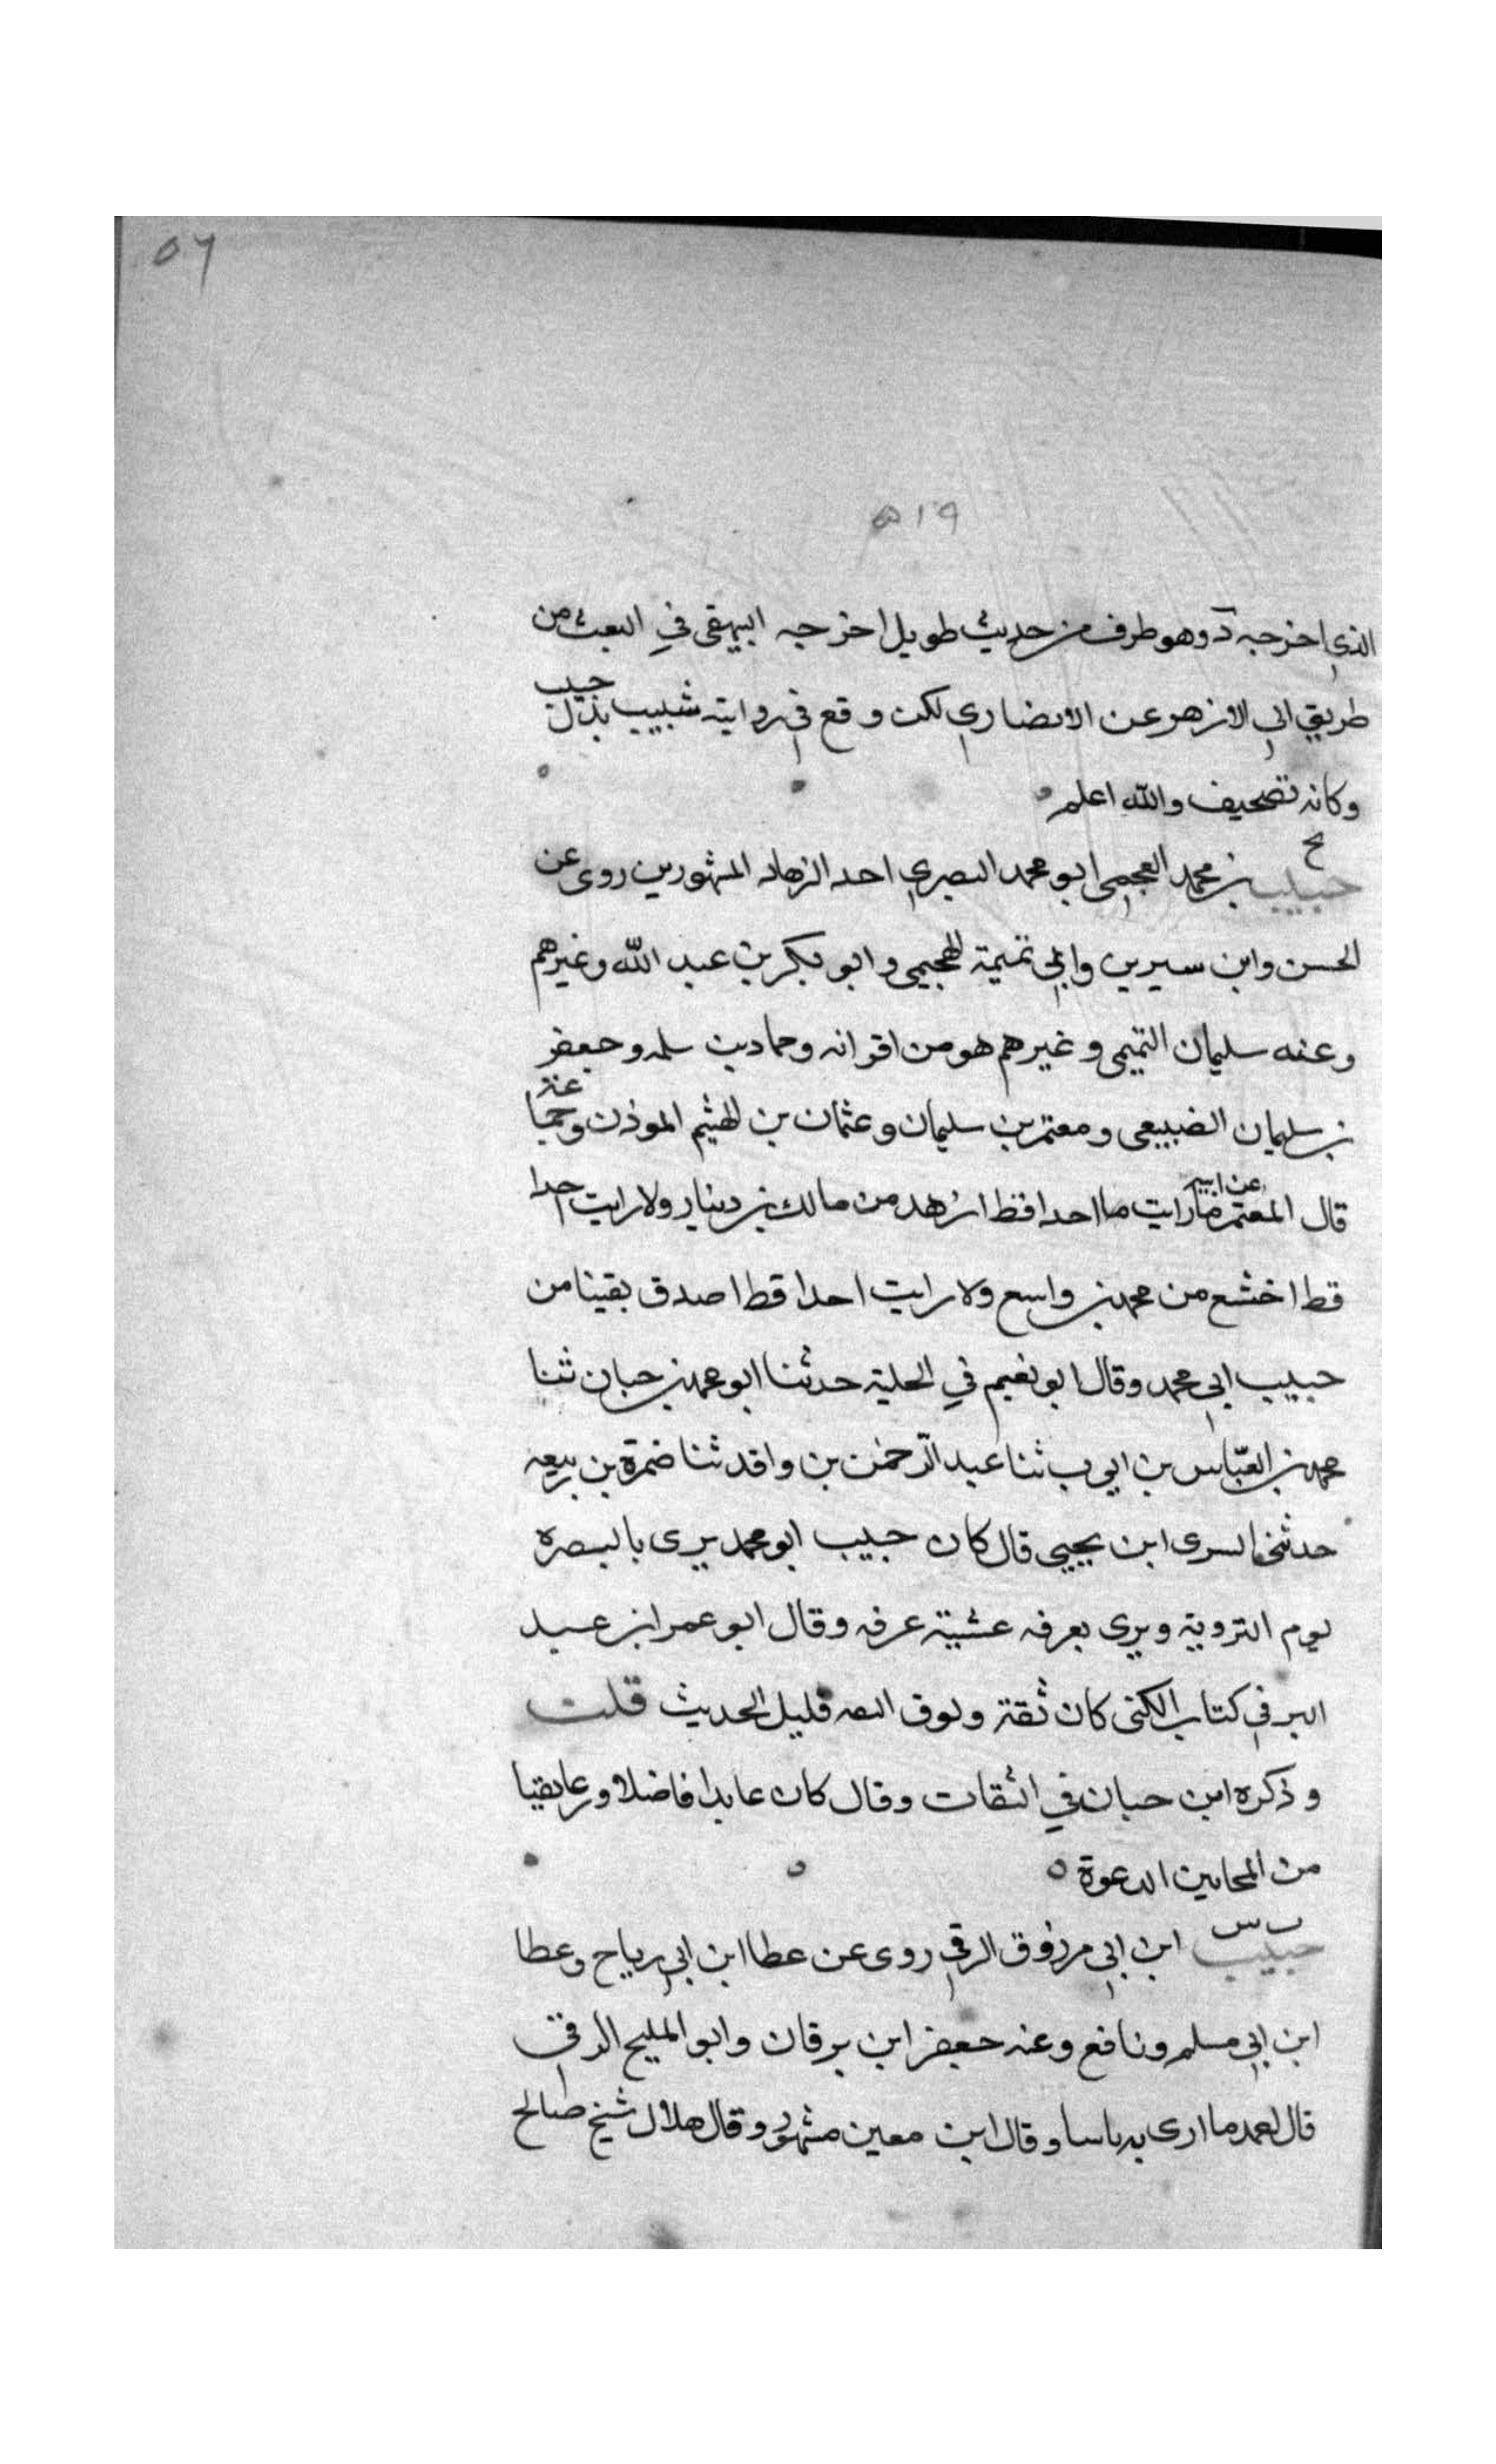 ٥٦
٥١٩
الذي اخرجه د وهو طرف من حديث طويل اخرجه البيهقي في البعث من
طريق ابي الازهر عن الانصاري لكن وقع في روايته شبيب بدل حبيب
وكانه تصحيف والله اعلم
بخ
حبيب بن محمد العجمي ابو محمد البصري احد الزهاد المشهورين روى عن
الحسن وابن سيرين وابي تميمة الهجيمي وابو بكر بن عبد الله وغيرهم
وعنه سليمان التيمي وغيرهم هو من اقرانه وحماد بن سلمه وجعفر
بن سليمان الضبيعي ومعتمر بن سليمان وعثمان بن الهيثم الموذن وجماعة
قال المعتمر عن ابيه ما رايت احدا قط ازهد من مالك بن دينار ولا رايت احدا
قط اخشع من محمد بن واسع ولا رايت احدا قط اصدق يقينا من
حبيب ابي محمد وقال ابو نعيم في الحلية حدثنا ابو محمد بن حبان ثنا
محمد بن العباس بن ايوب ثنا عبد الرحمن بن واقد ثنا ضمرة بن ربيعه
حدثني السرى ابن يحيى قال كان حبيب ابو محمد يرى بالبصره
يوم التروية ويرى بعرفه عشية عرفه وقال ابو عمر ابن عبد
البر في كتاب الكنى كان ثقة وفوق الثقه قليل الحديث قلت
وذكره ابن حبان في الثقات وقال كان عابدا فاضلا ورعا تقيا
من المجابين الدعوة
س
حبيب ابن ابي مرزوق الرقي روى عن عطا ابن ابي رباح وعطا
ابن ابي مسلم ونافع وعنه جعفر ابن برقان وابو المليح الرقي
قال احمد ما ارى به باسا وقال ابن معين مشهور وقال هلال شيخ صالح